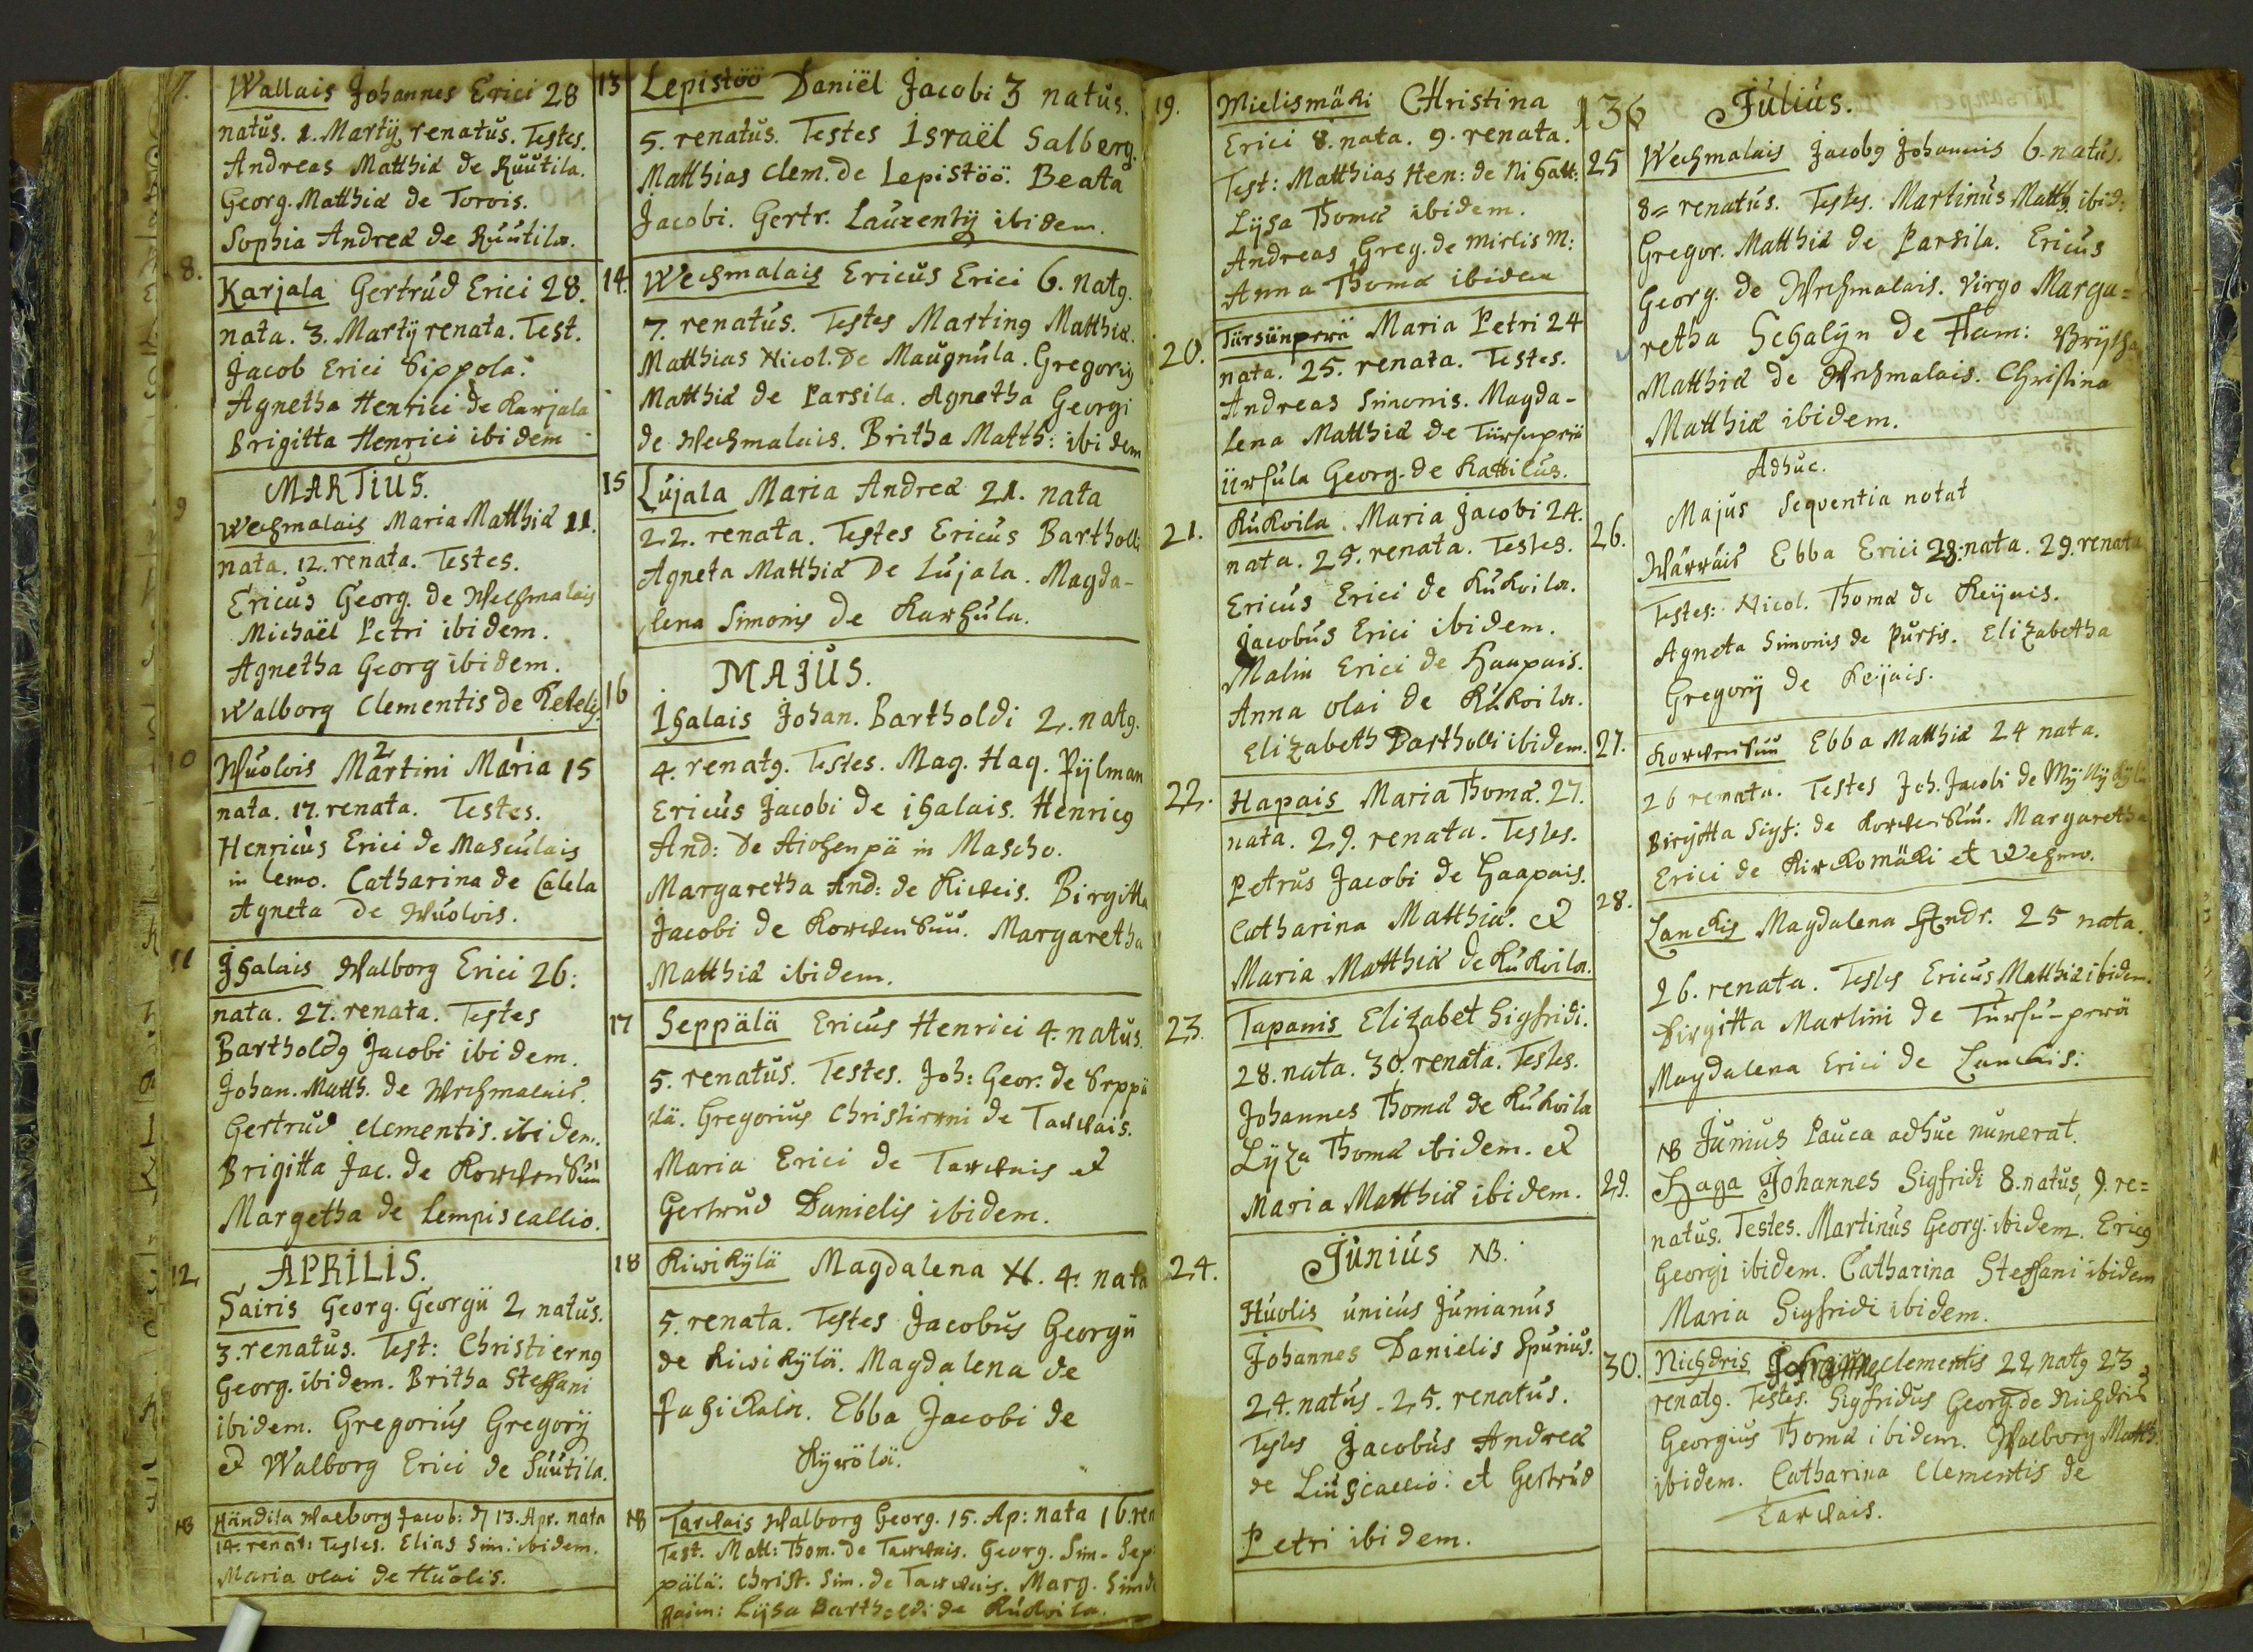 7. Wallais Johannes Erici 28
natus. 1. Martÿ renatus. Testes.
Andreas Matthiæ de Ruutila.
Georg. Matthiæ de Torois.
Sophia Andreæ de Ruutila.
8. Karjala Gertrud Erici 28.
nata. 3. Martÿ renata. Test.
Jacob Erici Sippola.
Agnetha Henrici de Karjala
Brigitta Henrici ibidem
MARTIUS.
9 Wechmalais Maria Matthiæ 11.
nata. 12. renata. Testes.
Ericus Georg. de Wechmalais
Michaël Petri ibidem.
Agnetha Georg ibidem.
Walborg Clementis de
10 Wuolois Martini Maria 15
nata. 17. renata. Testes.
Henricus Erici de Masculais
in Lemo. Catharina de Calela
Agneta de Wuolois.
11 Jhalais Walborg Erici 26:
nata. 27. renata. Testes
Bartholdg Jacobi ibidem.
Johan. Matth. de Wechmalais.
Gertrud Clementis. ibidem.
Brigitta Jac. de
Margetha de Lempiscallio.
APRILIS.
12 Sairis Georg. Georgii 2 natus.
3. renatus. Test: Christierng
Georg. ibidem. Britha Steffani
ibidem. Gregorius Gregorÿ
et Walborg Erici de Suutila.
NB Händila Walborg Jacob: 13. Apr. nata
14. renat: Testes. Elias Sim: ibidem.
Maria Olai de Huolis.
13 Lepistöö Daniël Jacobi 3 natus.
5. renatus. Testes Israël Salberg.
Matthias Clem. de Lepistöö. Beata
Jacobi. Gertr. Laurentÿ ibidem.
14. Wechmalais Ericus Erici 6. natg.
7. renatus. Testes Marting Matthiæ.
Matthias Nicol. de Maugnula. Gregorig
Matthiæ de Parsila. Agnetha Georgi
de Wechmalais. Britha Matth: ibidem
15 Lujala Maria Andreæ 21. nata
22. renata. Testes Ericus Bartholli
Agneta Matthiæ de Lujala. Magda-
lena Simonis de Karhula.
MAJUS.
16 Ihalais Johan. Bartholdi 2. natg.
4. renatg. Testes. Mag. Haq. Pÿlman
Ericus Jacobi de ihalais. Henricg
And: de Aichenpä in Mascho.
Margaretha And: de Birgitta
Jacobi de Margaretha
Matthiæ ibidem.
17 Seppälä Ericus Henrici 4. natus.
5. renatus. Testes. Joh: Geor. de Seppä
lä. Gregorius Christierni de Tarvais.
Maria Erici de Tarvais et
Gertrud Danielis ibidem.
18 Kiwikÿlä Magdalena H. 4. nata
5. renata. Testes Jacobus Georgii
de Kiwikÿlä. Magdalena de
Ebba Jacobi de
Kÿrölä.
NB Tarvais Walborg Georg. 15. Ap: nata 16. ren
Test. Matt: Thom. de Tarvais. Georg. Sim. Sep
pälä. Christ. Sim. de Tarvais. Marg. Sim
Lÿsa Bartholdi de Kukoila.
19. Mielismäki Christina
Erici 8. nata. 9. renata.
Test: Matthias Hen: de Nihatt:
Lÿsa Thomæ ibidem.
Andreas Greg. de Mielis M:
Anna Thomæ ibidem
20. Türsünperä Maria Petri 24
nata. 25. renata. Testes.
Andreas Simonis. Magda-
lena Matthiæ de Türsuperä
Ursula Georg. de Kattilus.
21. Kukoila Maria Jacobi 24.
nata. 25. renata. Testes.
Ericus Erici de Kukoila.
Jacobus Erici ibidem.
Malin Erici de Haapais.
Anna Olai de Kukoila.
Elizabeth Bartholli ibidem.
22. Hapais Maria Thomæ. 27.
nata. 29. renata. Testes.
Petrus Jacobi de Haapais.
Catharina Matthiæ. et
Maria Matthiæ de Kukoila.
23. Tapanis Elizabet Sigfridi.
28. nata. 30. renata. Testes.
Johannes Thomæ de Kukoila
Lÿza Thomæ ibidem. et
Maria Matthiæ ibidem.
24. Junius NB.
Huolis unicus Junianus
Johannes Danielis Spurius.
24. natus. 25. renatus.
Testes Jacobus Andreæ
de Liuhcallio: et Gertrud
Petri ibidem.
136 Julius.
25 Wechmalais Jacobg Johannis 6. natus.
8 = renatus. Testes. Martinus Matth. ibid:
Gregor. Matthiæ de Parsila. Ericus
Georg. de Wechmalais. Virgo Marga=
retha Schalÿn de Flam: Brÿtha
Matthiæ de Wechmalais. Christina
Matthiæ ibidem.
Adhuc.
Majus Sequentia notat
26. Wärräis Ebba Erici 28. nata. 29. renata
Testes: Nicol. Thomæ de Keijais.
Agneta Simonis de Pursis. Elizabetha
Gregorÿ de Keijais.
27. Ebba Matthiæ 24 nata.
26 renata. Testes Joh. Jacobi de Mÿllÿkÿlä
Birgitta Sigf: de Margaretha
Erici de Kirckomäki et Wehmo.
28. Lanckis Magdalena Andr. 25 nata.
26. renata. Testes Ericus Matthiæ ibidem.
Birgitta Martini de Tursu-perä
Magdalena Erici de Lanckis:
NB Junius Pauca adhuc numerat.
29. Haga Johannes Sigfridi 8. natus, 9. re=
natus. Testes. Martinus Georg: ibidem. Ericg
Georgi ibidem. Catharina Steffani ibidem
Maria Sigfridi ibidem.
30. Nichdris Johanns Clementis 22 natg 23
renatg. Testes. Sigfridus Georg. de Nichdris
Georgius Thomæ ibidem. Walborg Matth.
ibidem. Catharina Clementis de
Tarvais.